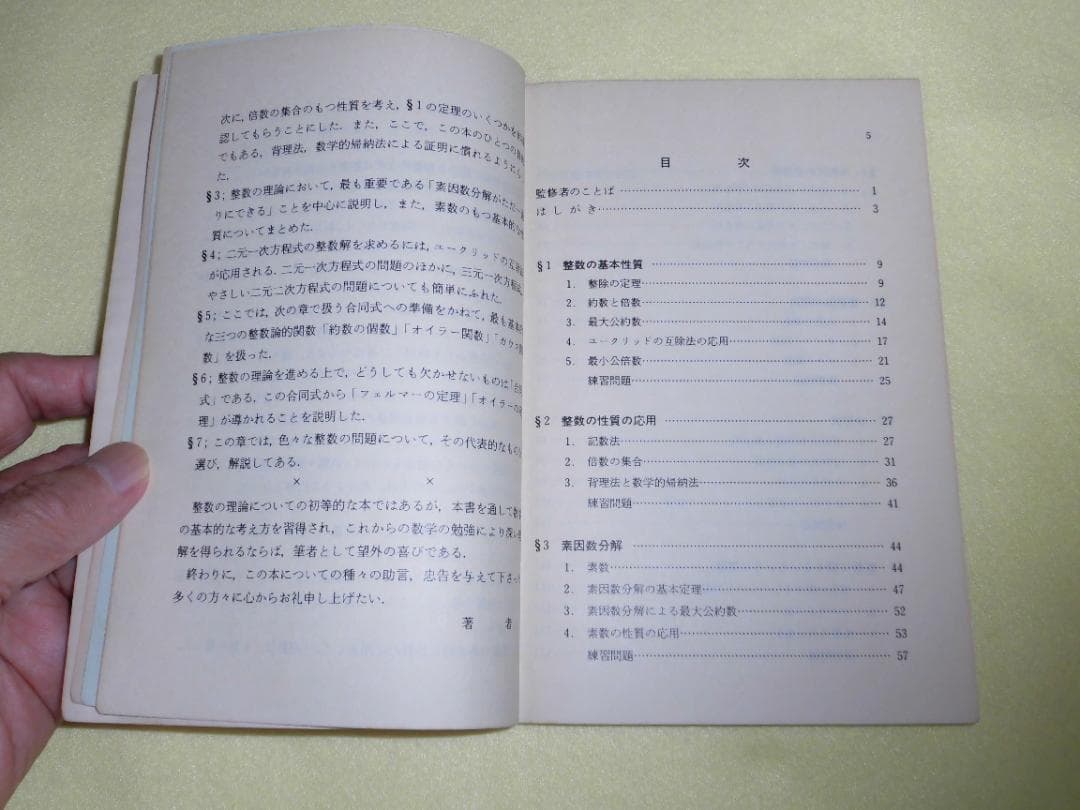 次に,倍数の集合のもつ性質を考え,§1の定理のいくつかを
認してもらうことにした.また,ここで,この本のひとつの
でもある,背理法,数学的帰納法による証明に慣れるように
た.
§3;整数の理論において,最も重要である「素因数分解がただ一
りにできる」ことを中心に説明し,また,素数のもつ基本的な
質についてまとめた.
§4;二元一次方程式の整数解を求めるには,ユークリッドの互除
が応用される.二元一次方程式の問題のほかに,三元一次方程式,
やさしい二元二次方程式の問題についても簡単にふれた.
§5;ここでは,次の章で扱う合同式への準備をかねて,最も基本
な三つの整数論的関数「約数の個数」「オイラー関数」「ガウス
数」を扱った.
§6;整数の理論を進める上で,どうしても欠かせないものは「合同
式」である.この合同式から「フェルマーの定理」「オイラーの
理」が導かれることを説明した.
§7;この章では,色々な整数の問題について,その代表的なもの
選び,解説してある.
× ×
整数の理論についての初等的な本ではあるが,本書を通して
の基本的な考え方を習得され,これからの数学の勉強により深い
解を得られるならば,筆者として望外の喜びである.
終わりに,この本についての種々の助言,忠告を与えて下さっ
多くの方々に心からお礼申し上げたい.
著 者
5
目 次
監修者のことば 1
はしがき 3
§1 整数の基本性質 9
1. 整除の定理 9
2. 約数と倍数 12
3. 最大公約数 14
4. ユークリッドの互除法の応用 17
5. 最小公倍数 21
練習問題 25
§2 整数の性質の応用 27
1. 記数法 27
2. 倍数の集合 31
3. 背理法と数学的帰納法 36
練習問題 41
§3 素因数分解 44
1. 素数 44
2. 素因数分解の基本定理 47
3. 素因数分解による最大公約数 52
4. 素数の性質の応用 53
練習問題 57